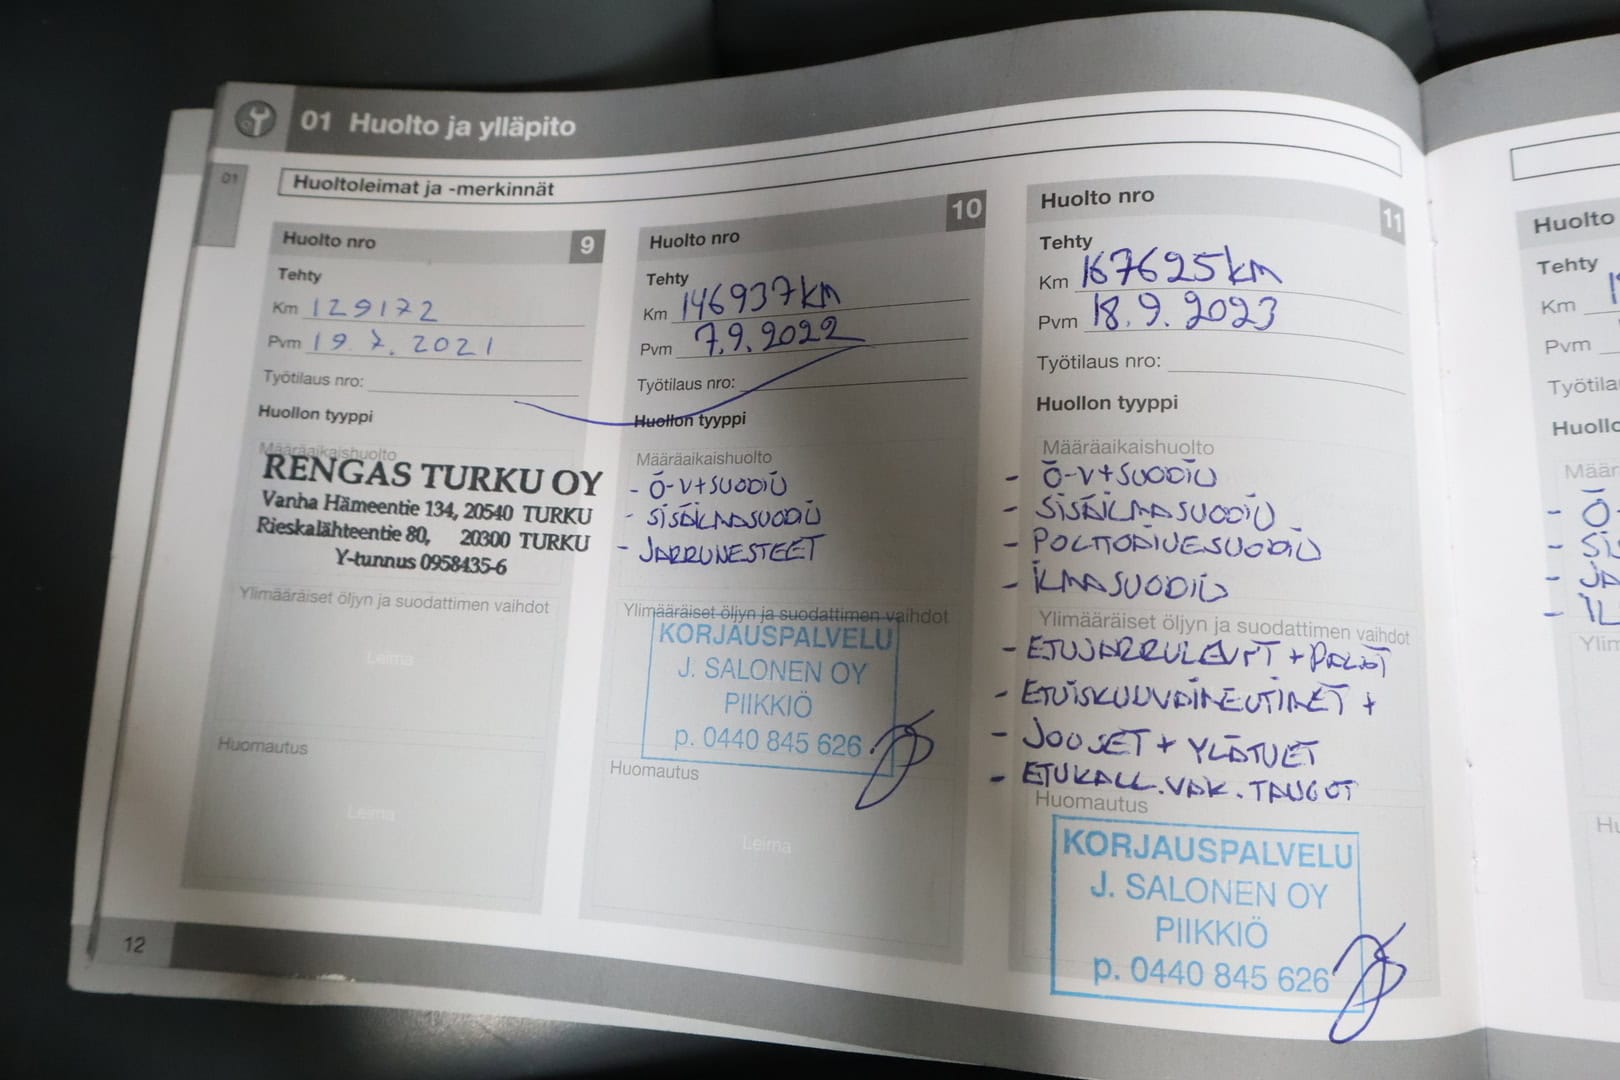 01 Huolto ja ylläpito
01
Huoltoleimat ja -merkinnät
Huolto nro 9
Tehty
Km 129172
Pvm 19.7.2021
Työtilaus nro:
Huollon tyyppi
Määräaikaishuolto
RENGAS TURKU OY
Vanha Hämeentie 134, 20540 TURKU
Rieskalähteentie 80, 20300 TURKU
Y-tunnus 0958435-6
Ylimääräiset öljyn ja suodattimen vaihdot
Leima
Huomautus
Leima
12
Huolto nro 10
Tehty
Km 146937km
Pvm 7.9.2022
Työtilaus nro:
Huollon tyyppi
Määräaikaishuolto
- Ö-V+SUODIN
- SISÄILMASUODIN
- JARRUNESTEET
Ylimääräiset öljyn ja suodattimen vaihdot
KORJAUSPALVELU
J. SALONEN OY
PIIKKIÖ
p. 0440 845 626
Huomautus
Leima
Huolto nro 11
Tehty
Km 167625km
Pvm 18.9.2023
Työtilaus nro:
Huollon tyyppi
Määräaikaishuolto
- Ö-V+SUODIN
- SISÄILMASUODIN
- POLTTOAINESUODIN
- ILMASUODIN
Ylimääräiset öljyn ja suodattimen vaihdot
- ETUJARRULEVYT + PALAT
- ETUISKUNVAIMENTIMET +
- JOUSET + YLÄTUET
- ETUKALL.VAK.TANGOT
Huomautus
KORJAUSPALVELU
J. SALONEN OY
PIIKKIÖ
p. 0440 845 626
Huolto
Tehty
Km
Pvm
Työtila
Huollo
Määr
- Ö-
- SIS
- JA
- IL
Ylim
Hu